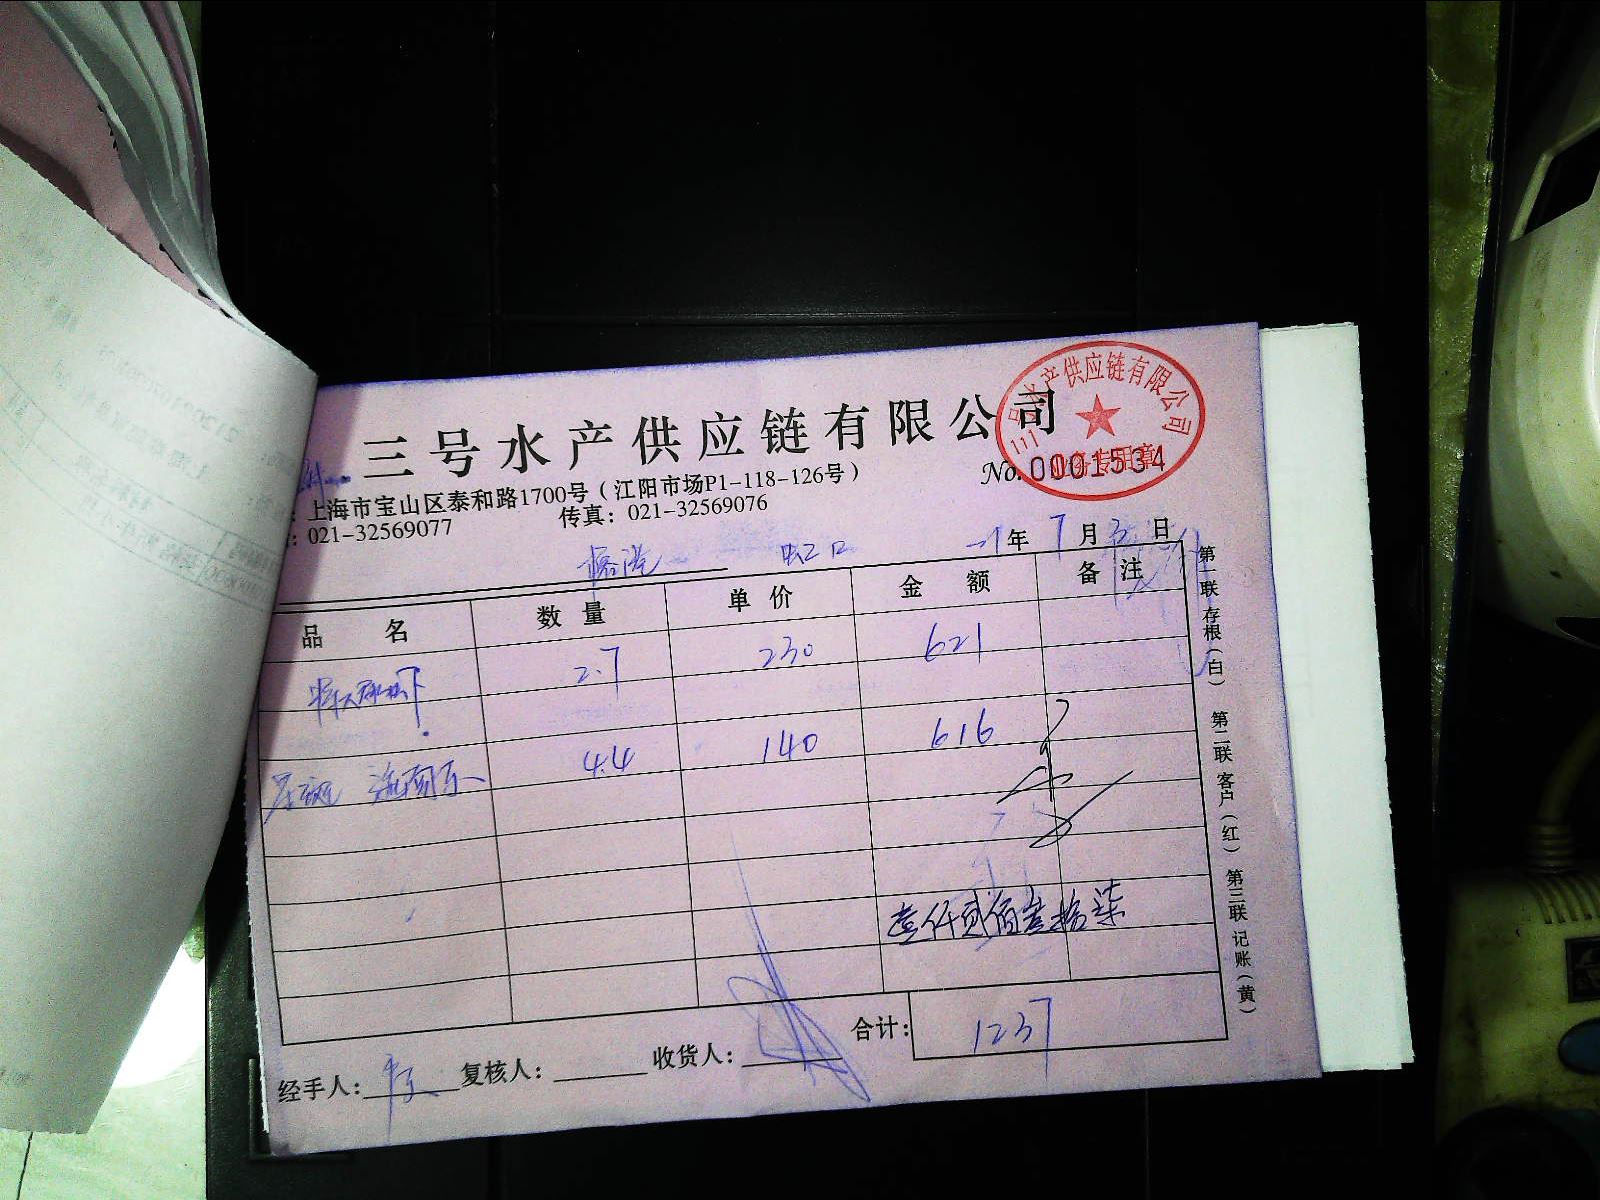 三号水产供应链有限公司
水产供应链有限公司
业务专用章
No. 0001534
上海市宝山区泰和路1700号（江阳市场P1-118-126号）
：021-32569077 传真：021-32569076
虹口
年 7 月 3 日
品 名 数 量 单 价 金 额 备 注
2.7 230 621
4.4 140 616
壹仟贰佰叁拾柒
合计： 1237
经手人： 复核人： 收货人：
第一联 存根（白） 第二联 客户（红） 第三联 记账（黄）